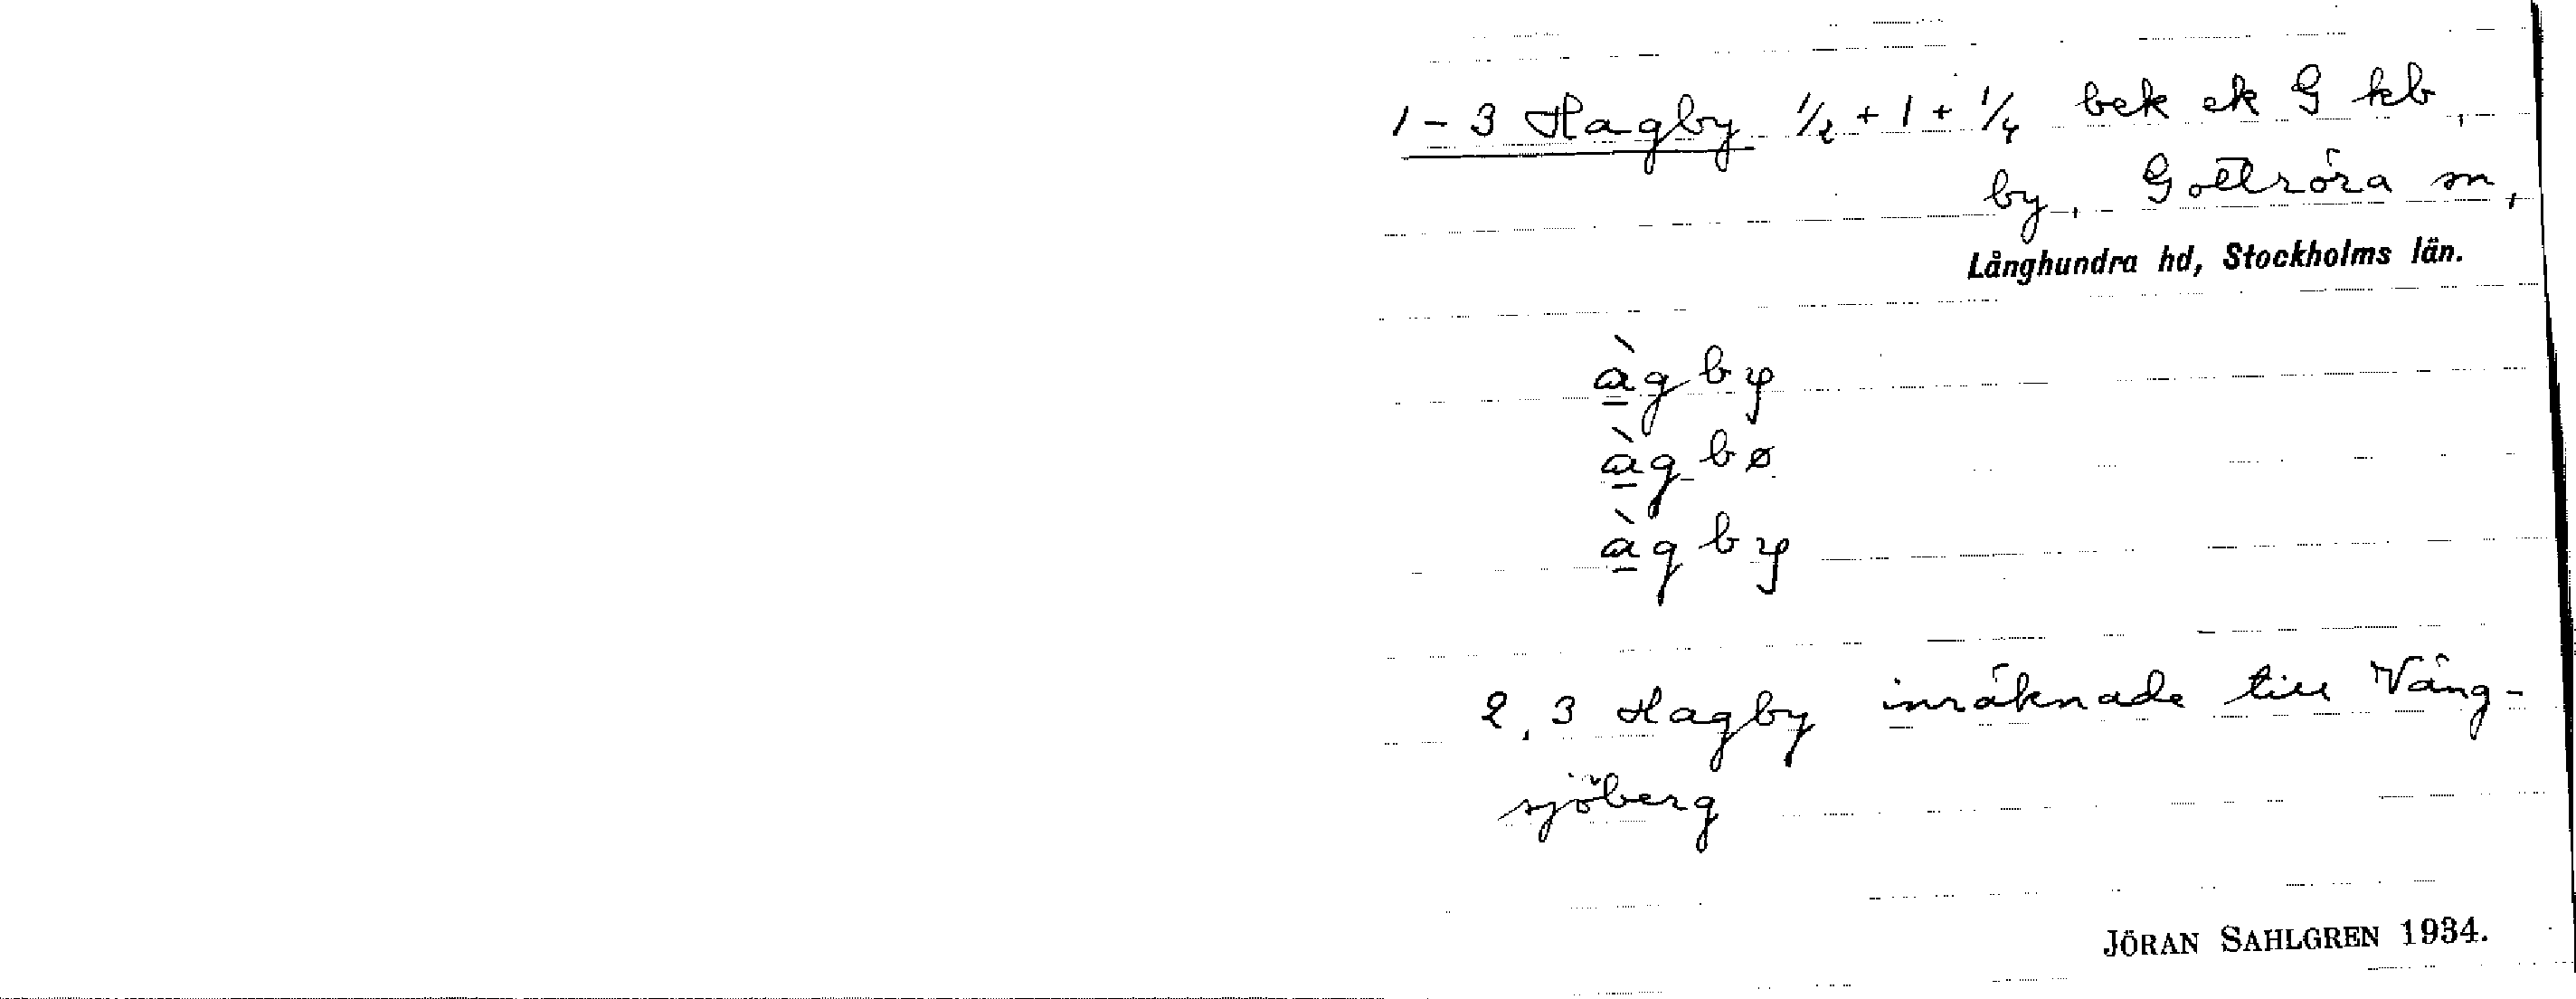 1-3 Hagby 1/2 + 1 + 1/4 bek ek G kb,
by, Gottröra sn,
Långhundra hd, Stockholms län.
àgby
àgbø
àgby
2, 3 Hagby inräknade till Väng-
sjöberg
JÖRAN SAHLGREN 1934.